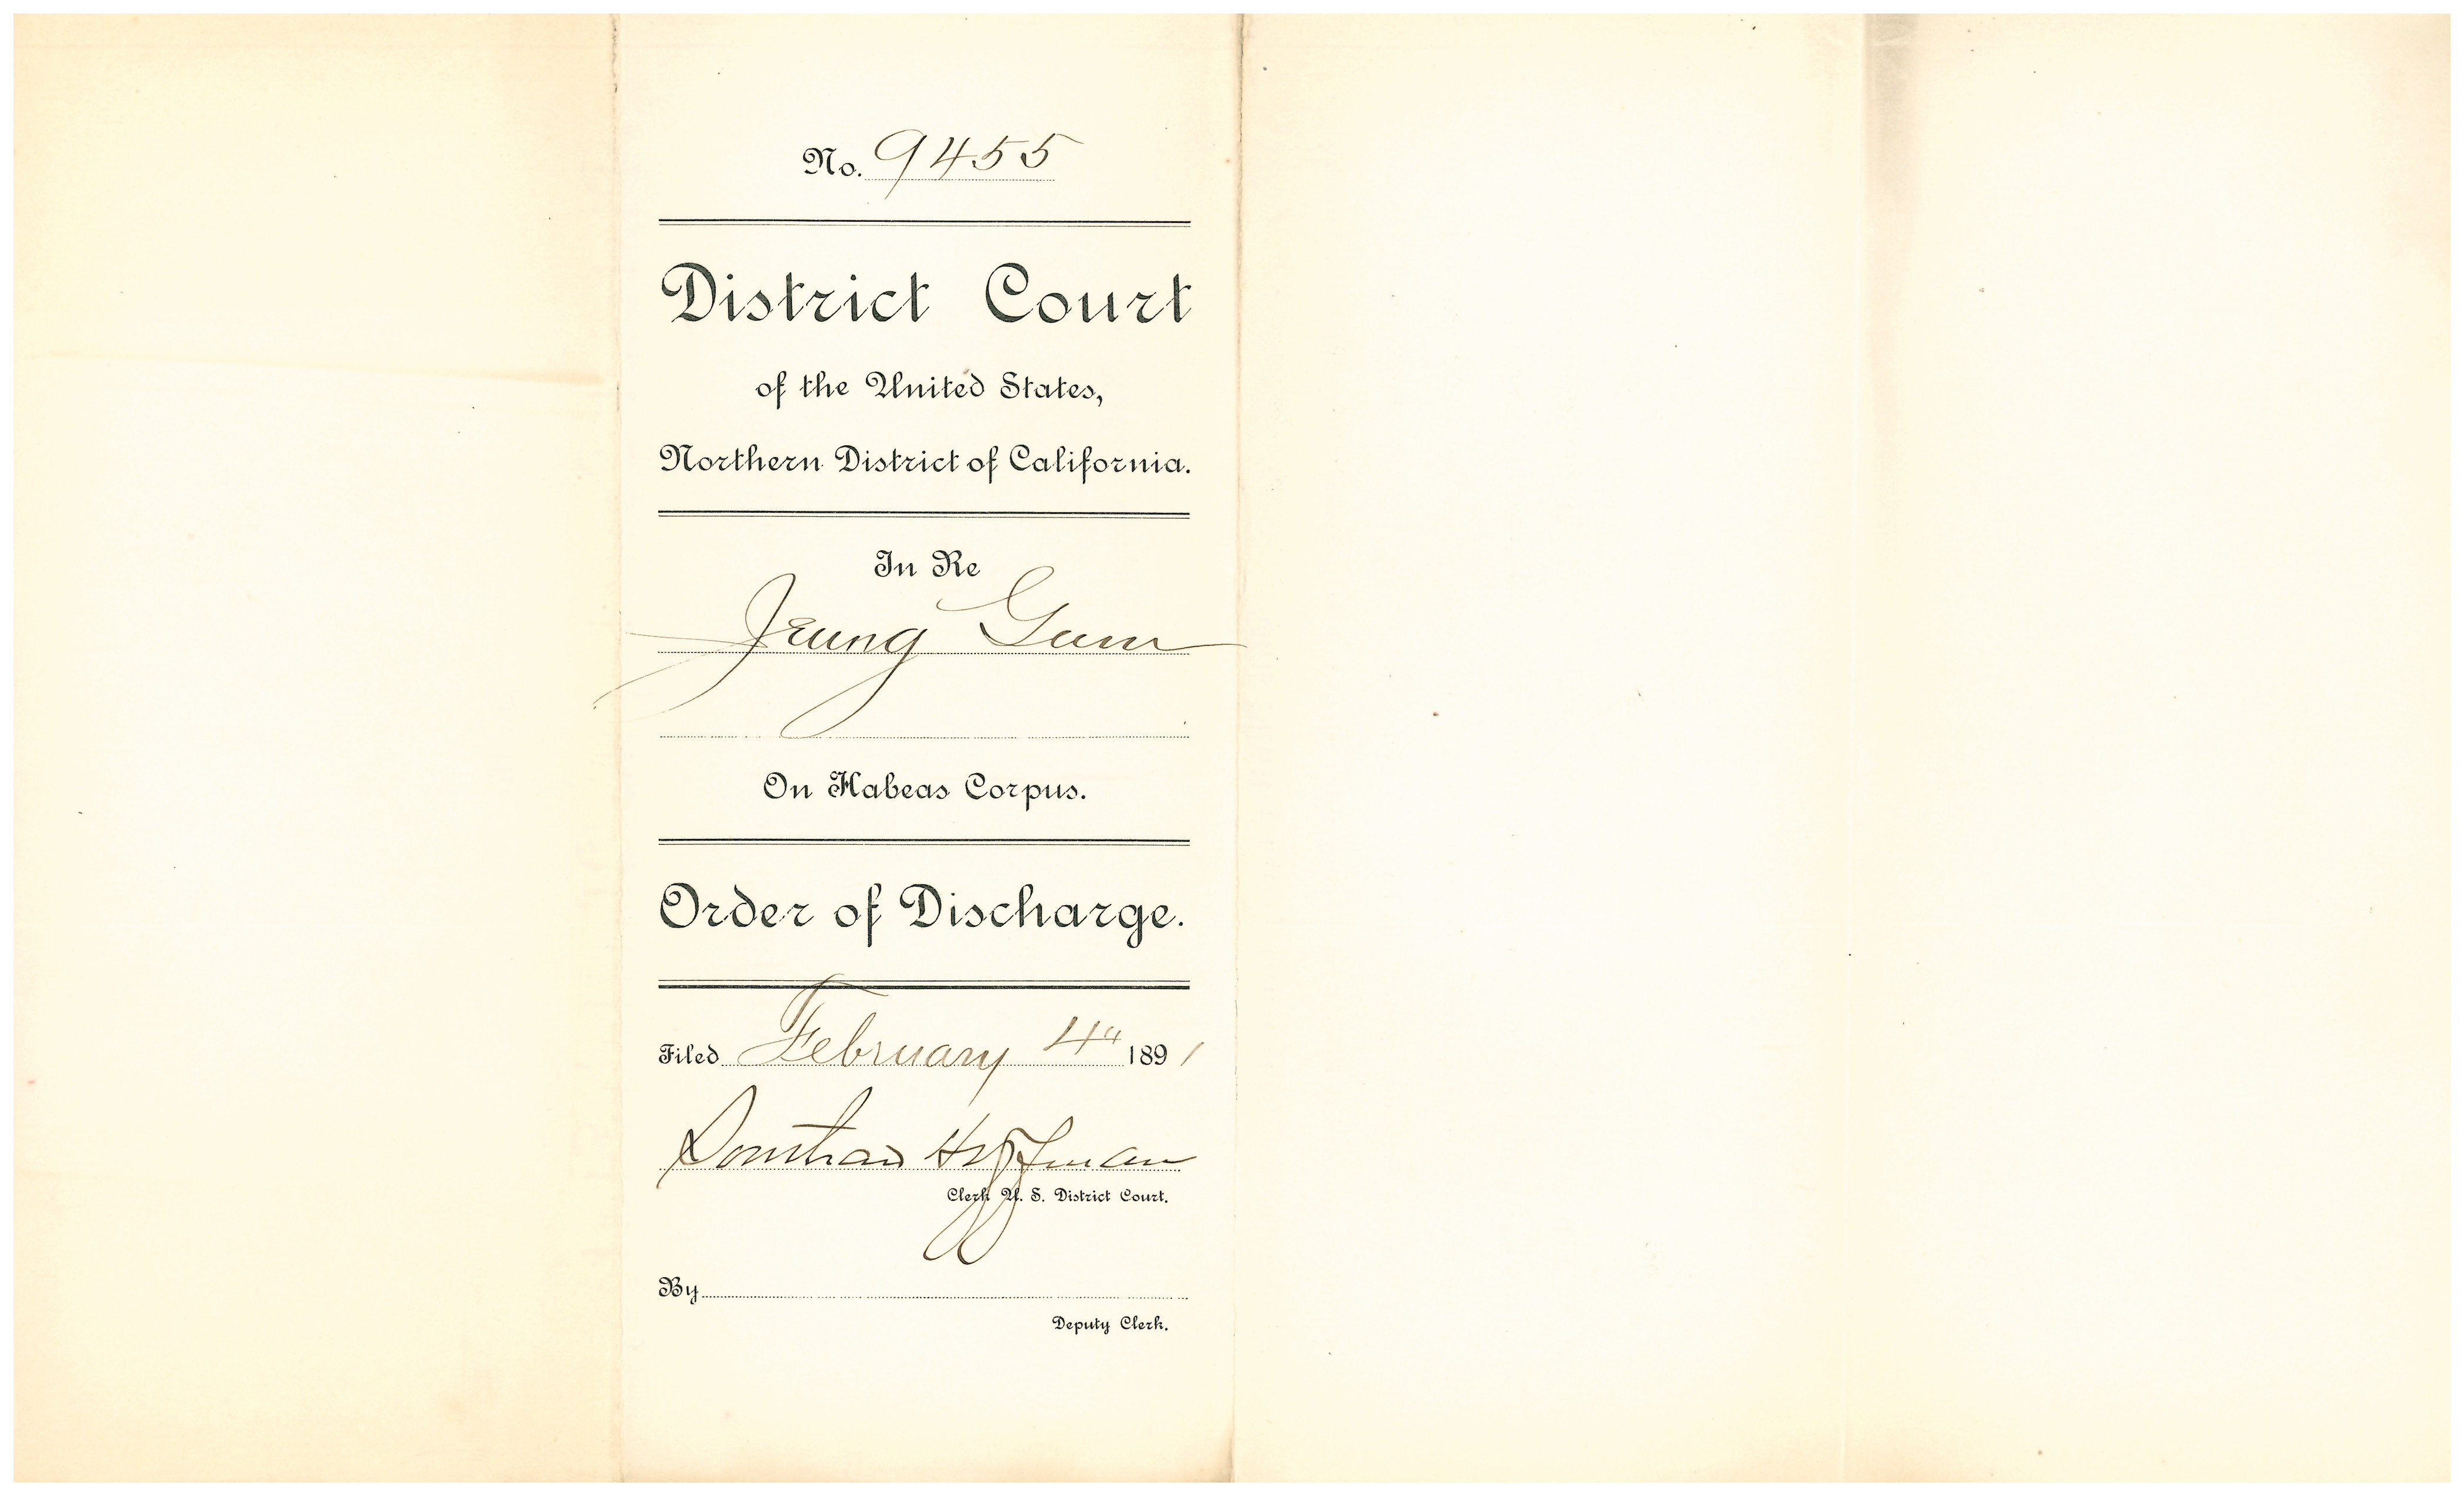 No. 9455
District Court
of the United States,
Northern District of California.
In Re
Jeung Gum
On Habeas Corpus.
Order of Discharge.
Filed February 4" 1891
Southard Hoffman
Clerk U. S. District Court.
By
Deputy Clerk.